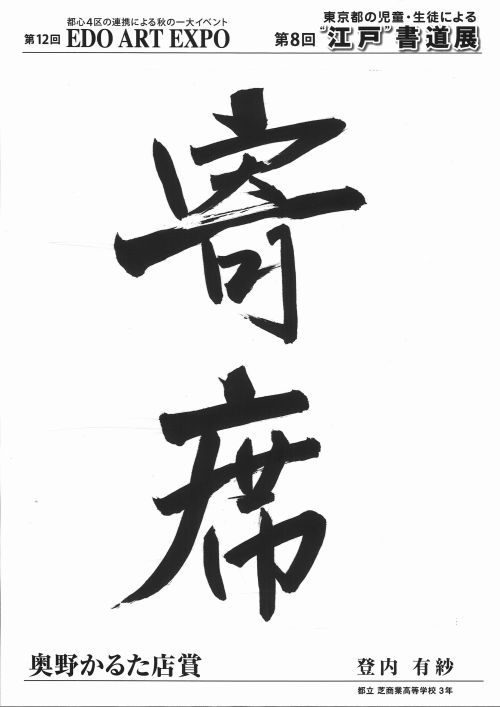 都心4区の連携による秋の一大イベント
第12回 EDO ART EXPO
東京都の児童・生徒による
第8回 “江戸”書道展
寄席
奥野かるた店賞
登内 有紗
都立 芝商業高等学校 3年